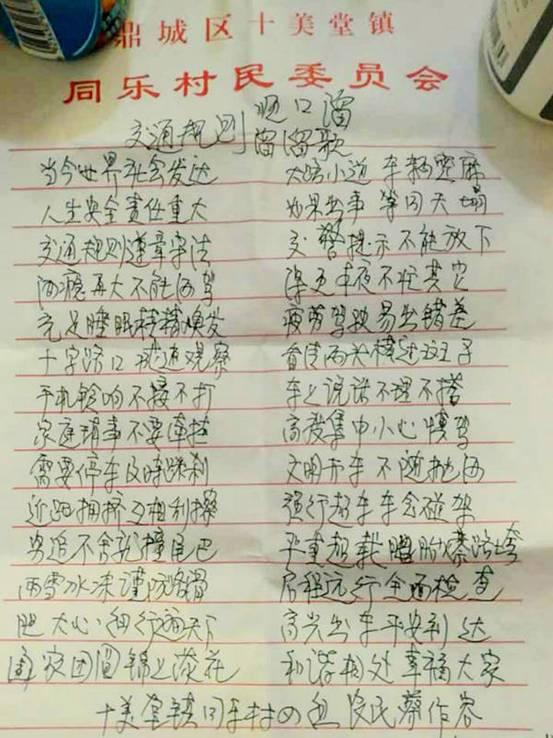 鼎城区十美堂镇
同乐村民委员会
顺口溜
交通规则 溜溜歌
当今世界社会发达 大路小道 车辆密麻
人生安全责任重大 如果出事 等同天塌
交通规则遵章守法 交警提示不能放下
酒瘾再大不能酒驾 深更半夜不忙其它
充足睡眠精精焕发 疲劳驾驶易出错差
十字路口 减速观察 首传两头
手机铃响不接不打 车上说话不理不搭
家庭琐事不要牵挂 高度集中小心慎驾
需要停车及时踩刹 文明开车不随抛洒
近距拥挤互相利擦 强行超车车会碰架
穷追不舍就撞尾巴 严重超载 路垮
雨雪冰冻谨防路滑 启程远行全面检查
胆大心细行遍天下 高兴出车平安到达
阖家团圆锦上添花 和谐相处幸福大家
十美堂镇同乐村四组 农民蔡作容